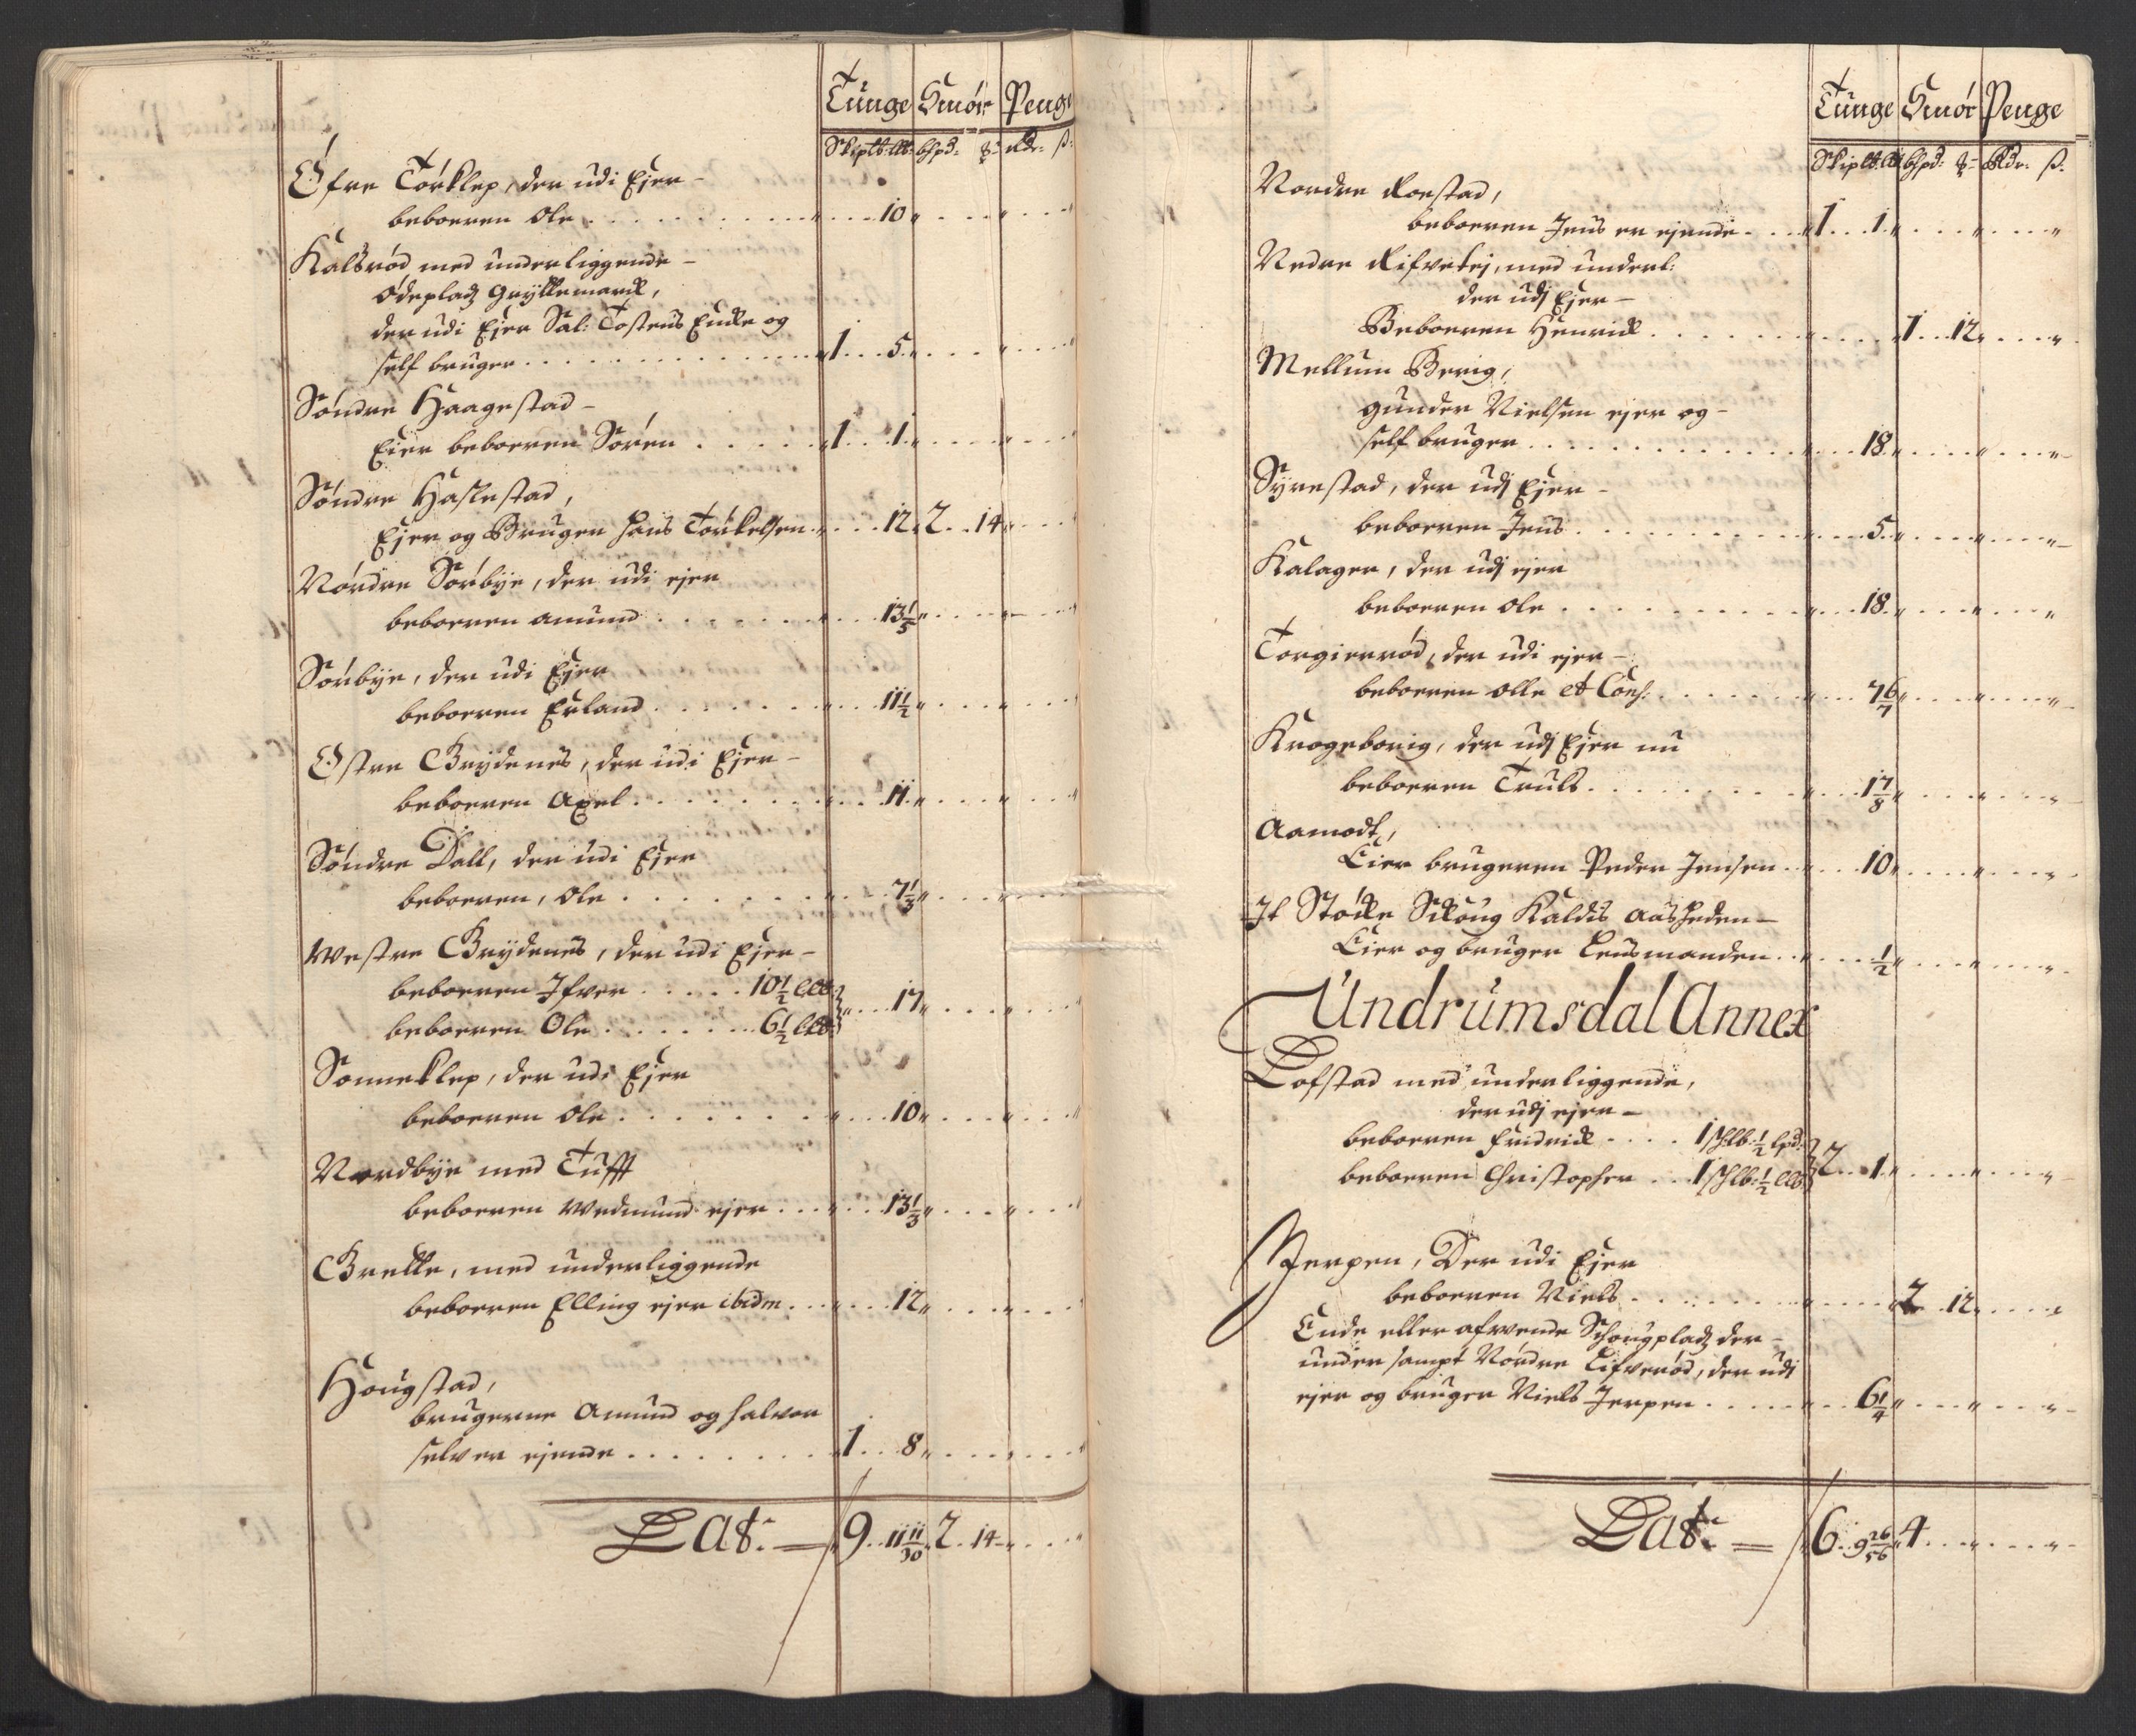 Tunge Smór Penge
Skiplb: lb: bßpd: ℔ Rdr. ß:
Øfre Tórklep, der udi Ejer –
beboeren Ole . . . 10
Kalsrød med underliggende –
Ódeplads Grytkemarck,
der udi Ejer Sal: Tostens Encke og
self bruger . . . 1 . . 5
Sóndre Haagestad –
Eier beboeren Sóren . . . 1 . . 1
Sóndre Haslestad,
Ejer og Bruger Hans Torkelsen . . 12 2 . . 14
Nórdre Sórbye, der udi ejer
beboeren Amund . . . 13 1/5
Sórbye, der udi Ejer
beboeren Erland . . . 11 1/2
Østre Brydenes, der udi Ejer –
beboeren Axel . . . 11
Sóndre Dall, der udi Ejer
beboeren, Ole . . . 7 1/3
Westre Brydenes, der udi Ejer –
beboeren Ifver . . . 10 1/2 llb
beboeren Ole . . . 6 1/2 llb . . 17
Sonneklep, der udi Ejer
beboeren Ole . . . 10
Nordbye med Tufft
beboeren Wedmund ejer . . . 13 1/3
Brekke, med underliggende
beboeren Elling ejer ibidm . . . 12
Hougstad,
brugerne Amund og Halvor
selver ejende . . . 1 . . 8
Lat: = 9 . . 11 11/30 2 . . 14
Tunge Smór Penge
Skiplb: lb: bßpd: ℔ Rdr. ß:
Nordre Roestad,
beboeren Jens er ejende . . . 1 . . 1
Nedre Rifvetej, med underl:
der udj Ejer –
Beboeren Henrick . . . 1 . . 12
Mellum Berig,
Gunder Nielsen ejer og –
self bruger . . . 18
Syrestad, der udj Ejer –
beboeren Jens . . . 5
Kalager, der udj ejer
beboeren Ole . . . 18
Torgierrød, der udi ejer –
beboeren Olle et Cons: . . . 7 6/7
Krogeborig, der udj Ejer nu
beboeren Truls . . . 1 7/8
Aamodt,
Eier brugeren Peder Jensen . . . 10
It Stócke Skoug Kaldis Aasheden –
Eier og bruger Lensmanden . . . 1/2
Undrumsdal Annex
Lofstad med underliggende,
der udj ejer –
beboeren Fridrick . . . 1 skllb: 1/2 lpd:
beboeren Christopher . . 1 skllb: 1/2 llb 2 . . 1
Jerpen, Der udi Ejer
beboeren Niels . . . 2 . . 12
Ende eller afvende Schougplads der –
under sampt Nórdre Lifverød, der udi
ejer og bruger Niels Jerpen . . . 6 1/4
Lat: = 6 . . 9 26/56 4